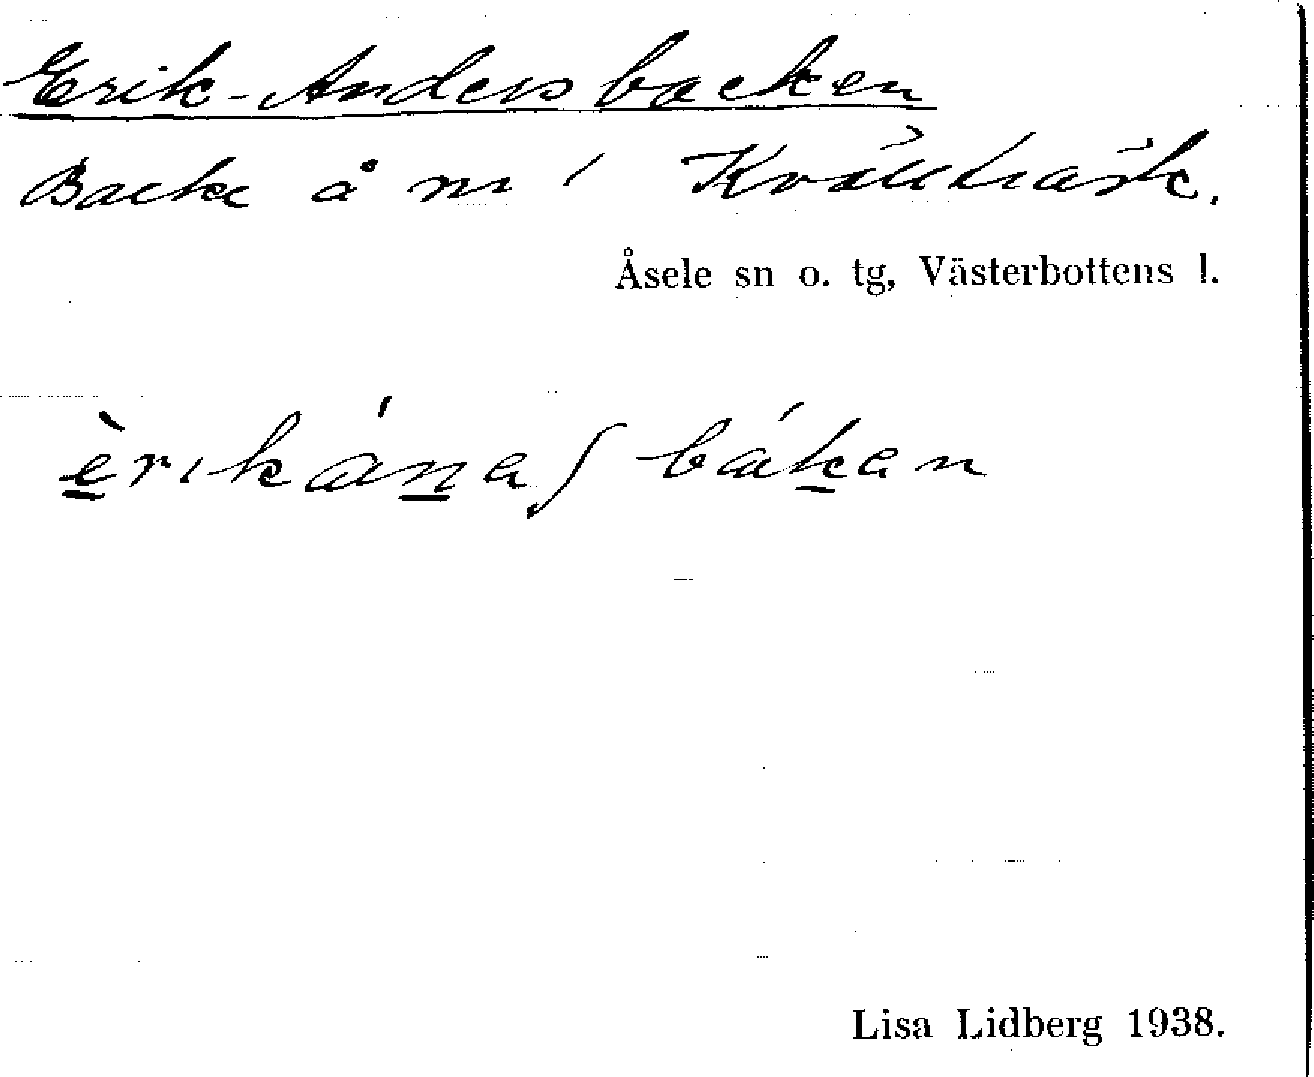 Erik-Andersbacken
Backe å m i Kvällträsk.
Åsele sn o. tg, Västerbottens l.
èrikánaʃ bákan
Lisa Lidberg 1938.